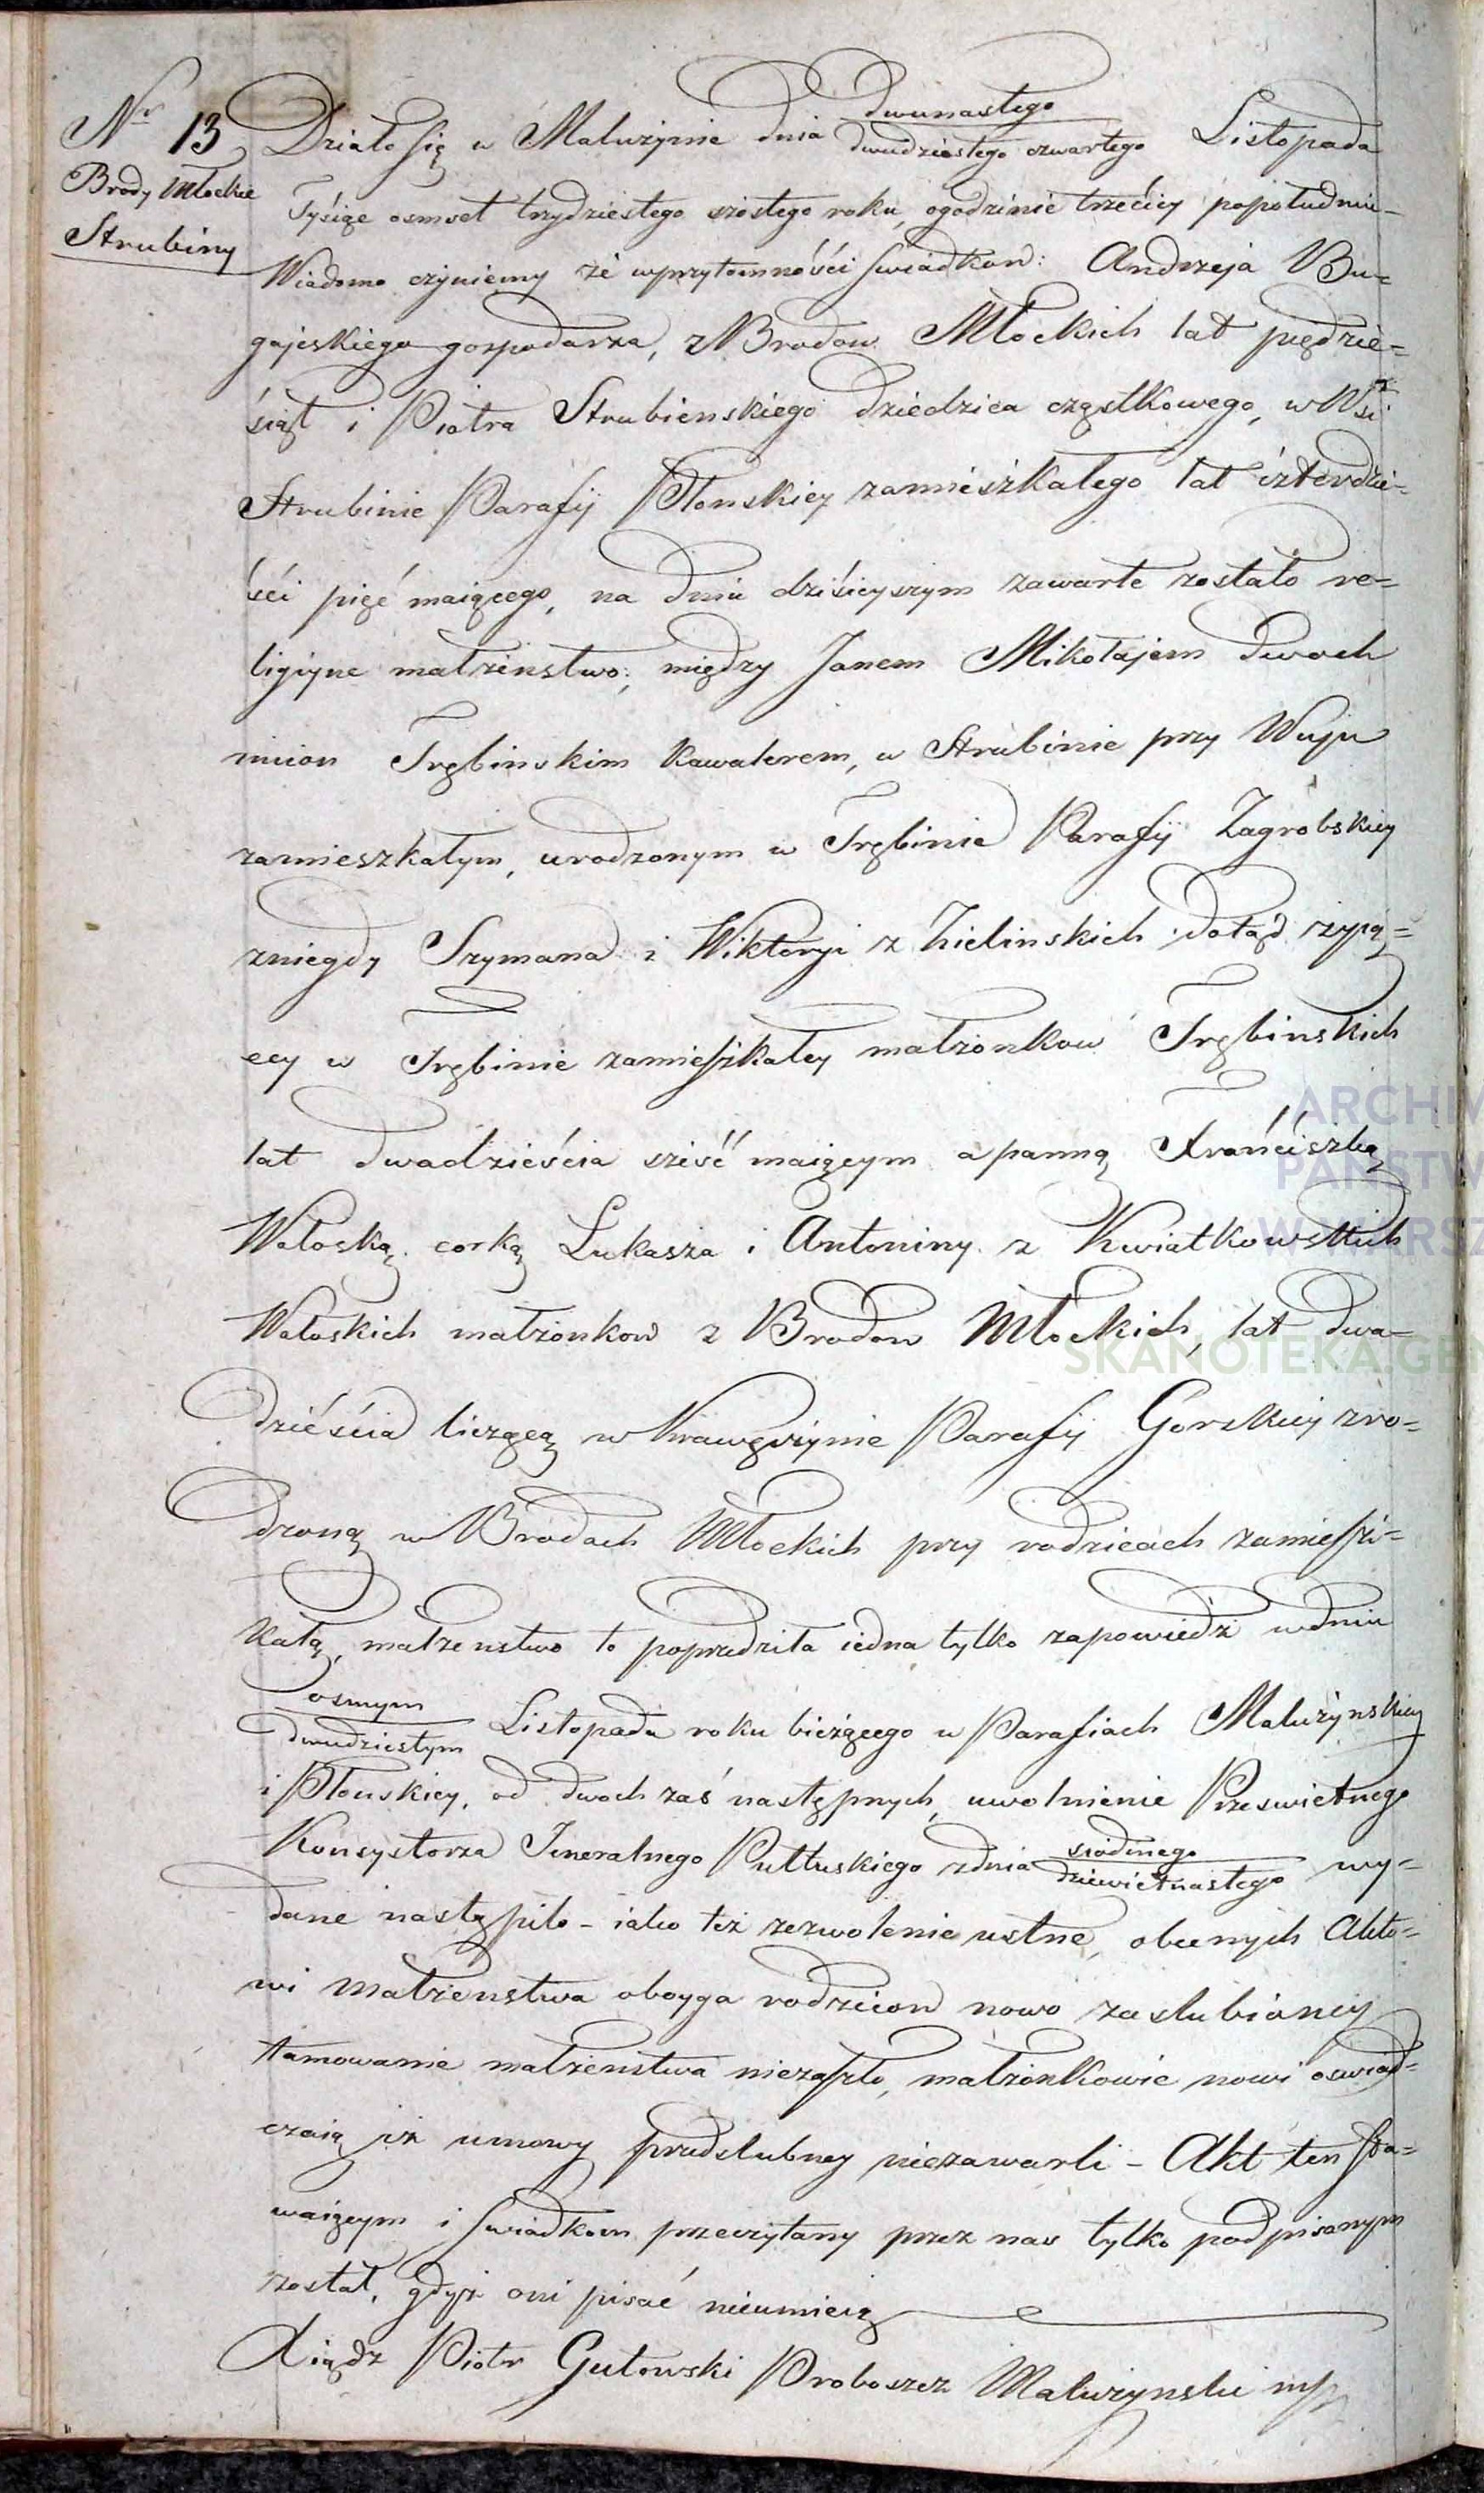 Nr 13
Brody Młockie
Strubiny
dwunastego
Działo się w Maluzynie dnia dwudziestego czwartego Listopada
Tysiąc osmset trzydziestego szostego roku, ogodzinie trzeciey popołudniu
Wiadomo czyniemy że wprzytomności swiadkow: Andrzeja Bu=
gajeskiego gospodarza, z Brodow Młockich lat pięćdzie=
siąt i Piotra Strubienskiego dziedzica cząstkowego, w Wsi
Strubinie Parafij Płonskiey zamieszkałego lat czterdzie=
ści pięć maiącego, na dniu dzisieyszym zawarte zostało re=
ligiyne małżenstwo; między Janem Mikołajem dwoch
imion Trębinskim Kawalerem, w Strubinie przy Wuju
zamieszkałym, urodzonym w Trębinie Parafij Zagrobskiey
zniegdy Szymana i Wiktoryi z Zielinskich dotąd żyią=
cey w Trębinie zamieszkałey małżonkow Trębinskich
lat dwadzieścia sześć maiącym a panną Franciszką
Wołoską corką Łukasza i Antoniny z Kwiatkowskich
Wołoskich małżonkow z Brodow Młockich, lat dwa=
dzieścia liczącą w Krawęczynie Parafij Gorskiey zro=
dzoną w Brodach Młockich przy rodzicach zamiesz=
kałą, małzenstwo to poprzedziła iedna tylko zapowiedź wdniu
osmym
dwudziestym Listopada roku bieżącego w Parafiach Malużynskiey
i Płonskiey, od dwoch zaś następnych, uwolnienie Przeswietnego
Konsystorza Jeneralnego Pułtuskiego zdnia siodmego
dziewietnastego wy=
dane nastąpiło - iako też zezwolenie ustne, obecnych Akto=
wi Małżenstwa oboyga rodzicow nowo zaslubioney
tamowanie małżenstwa niezaszło, małżonkowie nowi oswiad=
czaią iż umowy przedslubney niezawarli - Akt ten sta=
waiącym i swiadkom przeczytany przez nas tylko podpisanym
został, gdyż oni pisać nieumieią
Xiądz Piotr Gutowski Proboszcz Maluzynski mp
ARCHIW
PAŃSTW
W WARSZ
SKANOTEKA.GEN